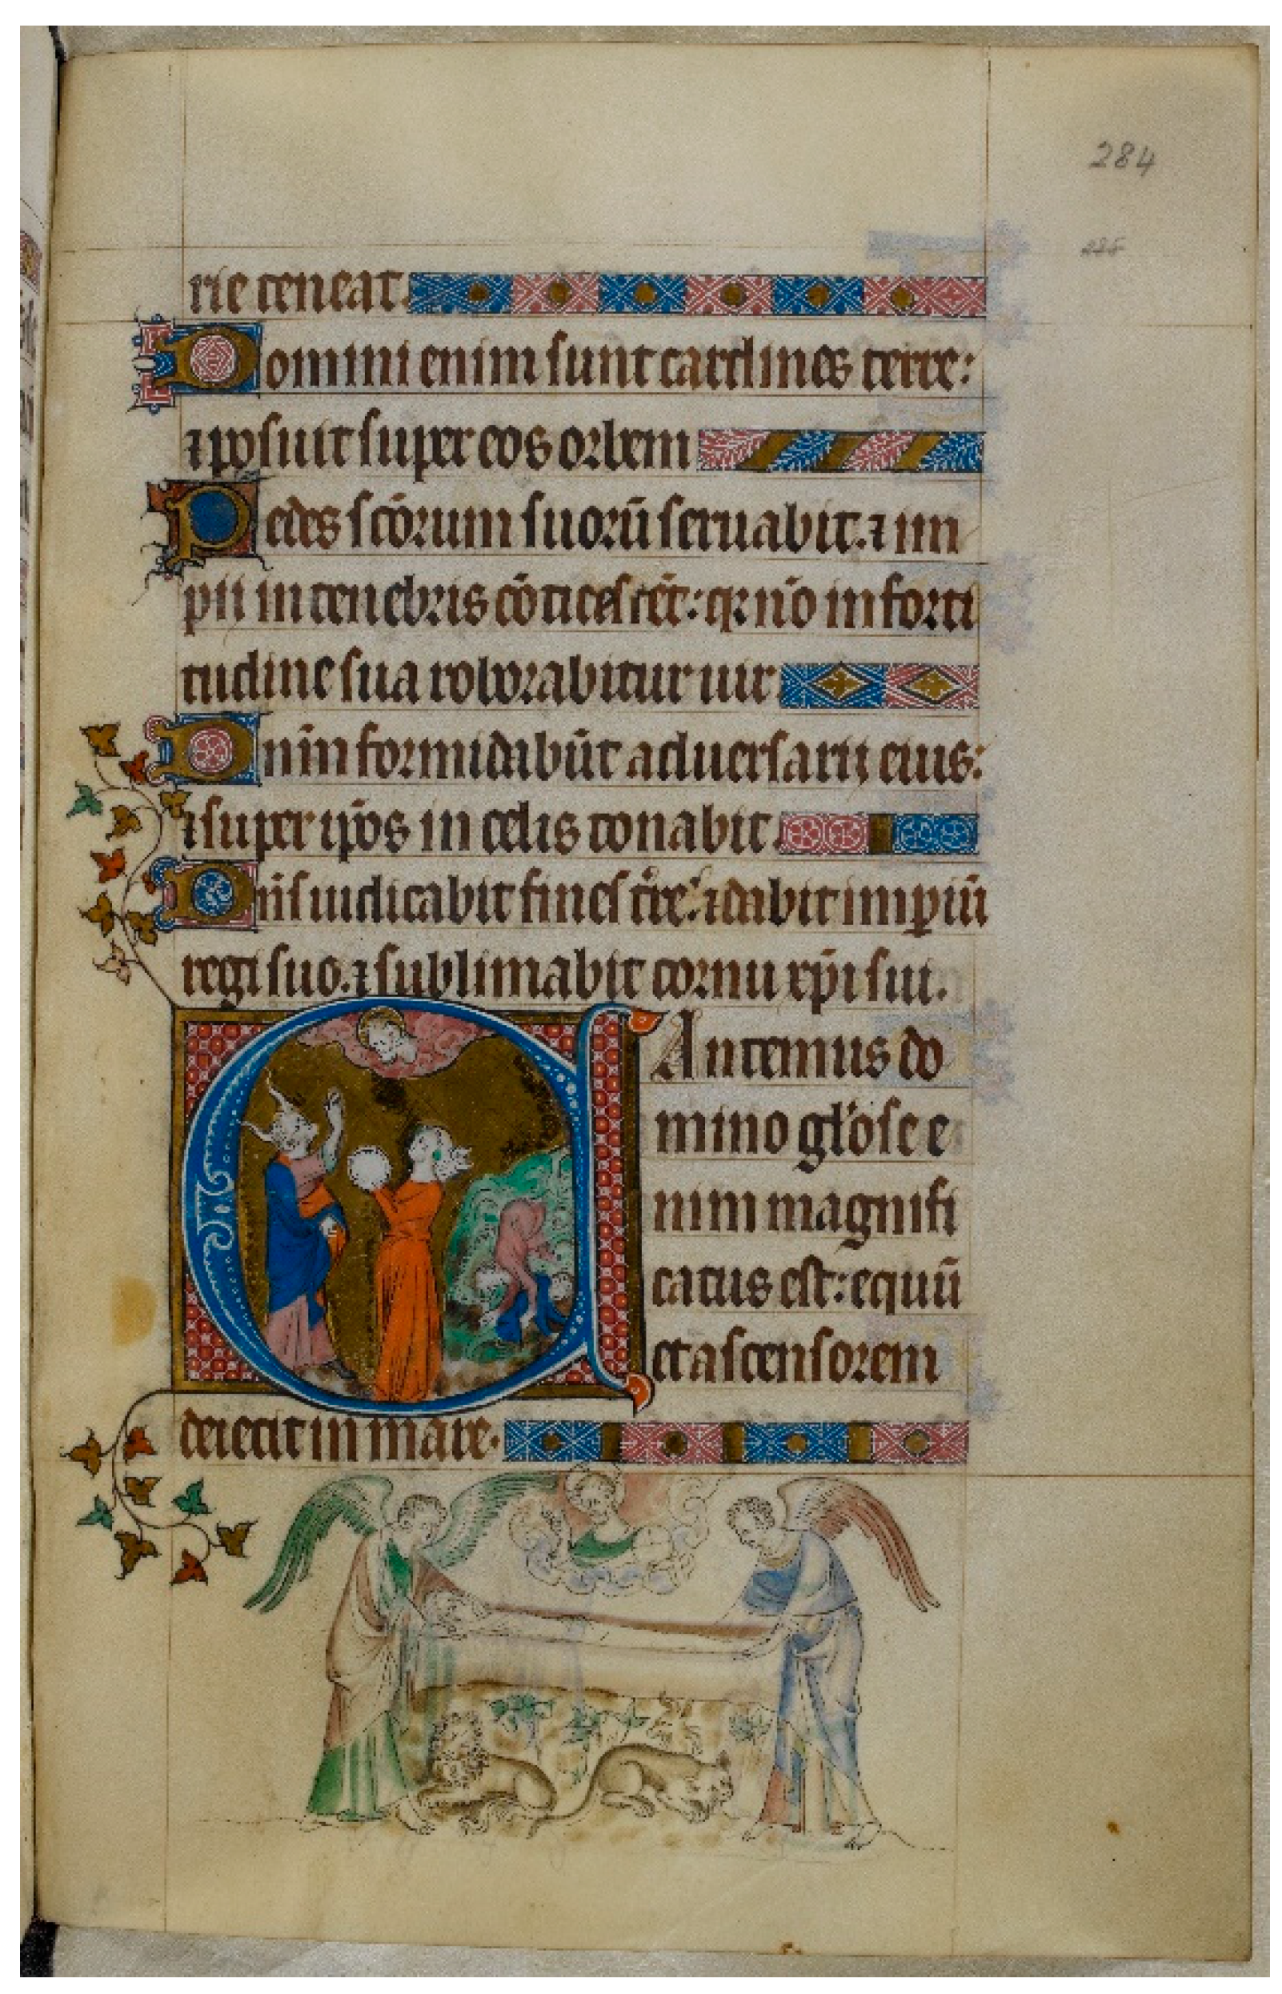 284
rie teneat.
Domini enim sunt cardines terre:
⁊ posuit super eos orbem
Pedes scōrum suorū seruabit. ⁊ im
pii in tenebris cōticescēt: qr nō in forti
tudine sua roborabitur uir
Dnm̄ formidabūt aduersarij eius:
⁊ super ip̄os in celis tonabit.
Dn̄s iudicabit fines tr̄re: ⁊ dabit imp̲iū
regi suo. ⁊ sublimabit cornu xp̄i sui.
CAntemus do
mino gl'ose e
nim magnifi
catus est: equū
et ascensorem
deiecit in mare.